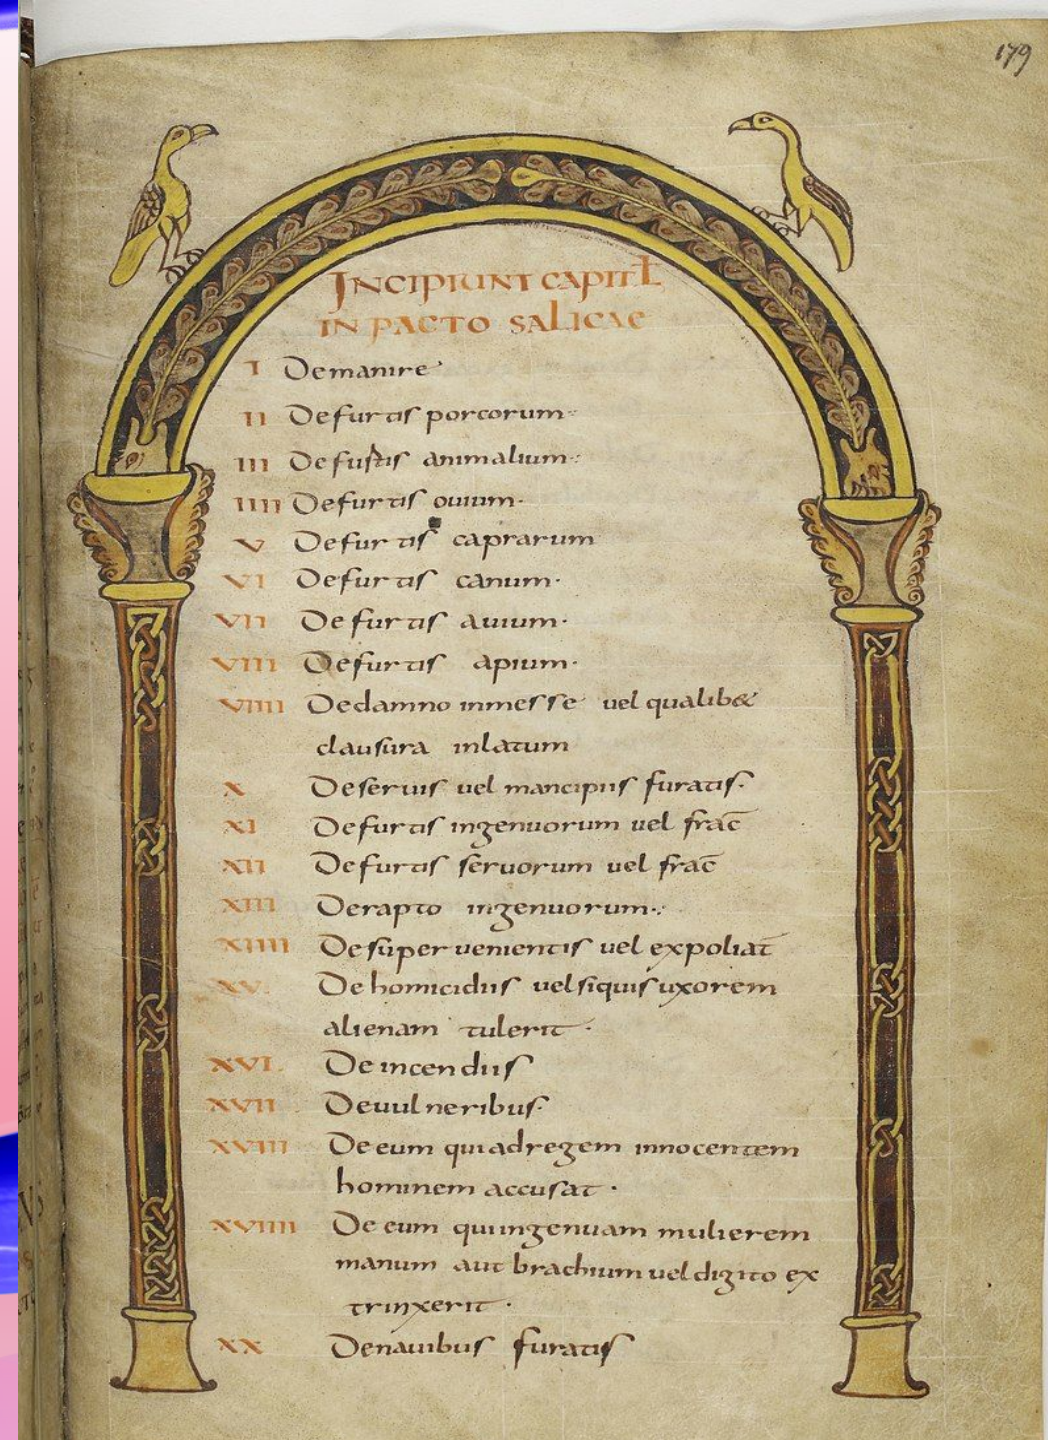 179
INCIPIUNT CAPITŁ
IN PACTO SALICAE
I Demanire
II Defurtis porcorum
III Defurtis animalium
IIII Defurtis ouium.
V Defurtis caprarum
VI Defurtis canum.
VII Defurtis auium.
VIII Defurtis apium.
VIIII Dedamno inmesse uel qualib&
clausura inlatum
X Deseruis uel mancipiis furatis.
XI Defurtis ingenuorum uel frac̄
XII Defurtis seruorum uel frac̄
XIII Derapto ingenuorum.
XIIII Desuper uenientis uel expoliat̄
XV. De homicidiis uelsiquis uxorem
alienam tulerit.
XVI. De incendiis
XVII Deuulneribus.
XVIII De eum quiadregem innocentem
hominem accusat.
XVIIII De eum quiingenuam mulierem
manum aut brachium uel digito ex
trinxerit.
XX Denauibus furatis